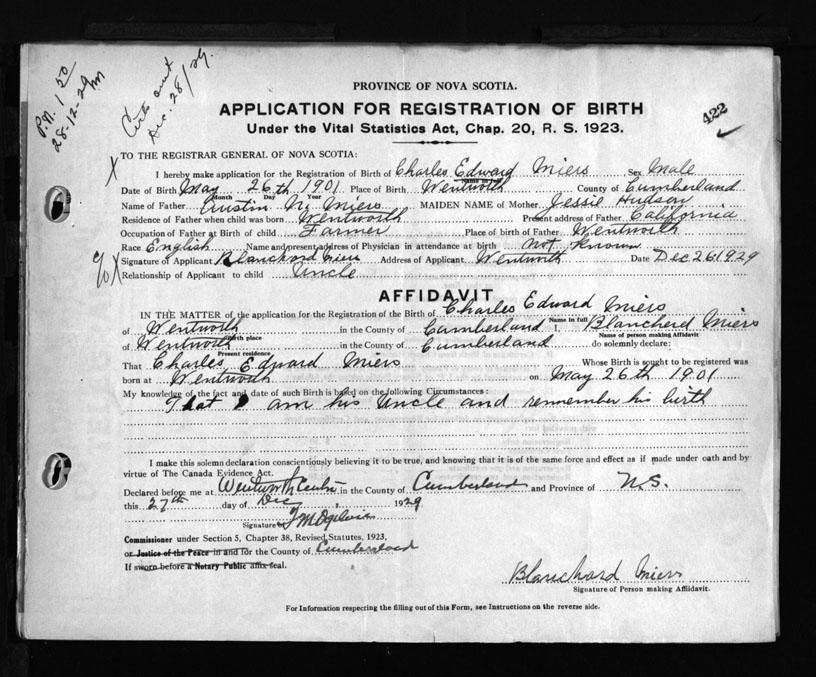 P.N. 1 50
28-12-29
Dec. 28/29.
PROVINCE OF NOVA SCOTIA.
APPLICATION FOR REGISTRATION OF BIRTH
422
Under the Vital Statistics Act, Chap. 20, R. S. 1923.
X TO THE REGISTRAR GENERAL OF NOVA SCOTIA:
I hereby make application for the Registration of Birth of Charles Edward Miers Sex Male
Name in full
Date of Birth May 26th 1901 Place of Birth Wentworth County of Cumberland
Month Day Year
Name of Father N. Miers MAIDEN NAME of Mother Jessie Hudson
Residence of Father when child was born Wentworth Present address of Father California
Occupation of Father at Birth of child Farmer Place of birth of Father Wentworth
Race English Name and present address of Physician in attendance at birth Not Known
X Signature of Applicant Blanchard Miers Address of Applicant Wentworth Date Dec 26 1929
Relationship of Applicant to child Uncle
AFFIDAVIT
IN THE MATTER of the application for the Registration of the Birth of Charles Edward Miers
Name in full
of Wentworth in the County of Cumberland I, Blanchard Miers
Birth place Name of person making Affidavit
of Wentworth in the County of Cumberland do solemnly declare:
Present residence
That Charles Edward Miers Whose Birth is sought to be registered was
born at Wentworth on May 26th 1901
My knowledge of the fact and date of such Birth is based on the following Circumstances:
That I am his Uncle and remember his birth
I make this solemn declaration conscientiously believing it to be true, and knowing that it is of the same force and effect as if made under oath and by
virtue of The Canada Evidence Act.
Declared before me at Wentworth Centre in the County of Cumberland and Province of N.S.
this 27th day of Dec, 1929
Signature
Commissioner under Section 5, Chapter 38, Revised Statutes, 1923,
or Justice of the Peace in and for the County of Cumberland
If sworn before a Notary Public affix seal.
Blanchard Miers
Signature of Person making Affidavit.
For Information respecting the filling out of this Form, see Instructions on the reverse side.